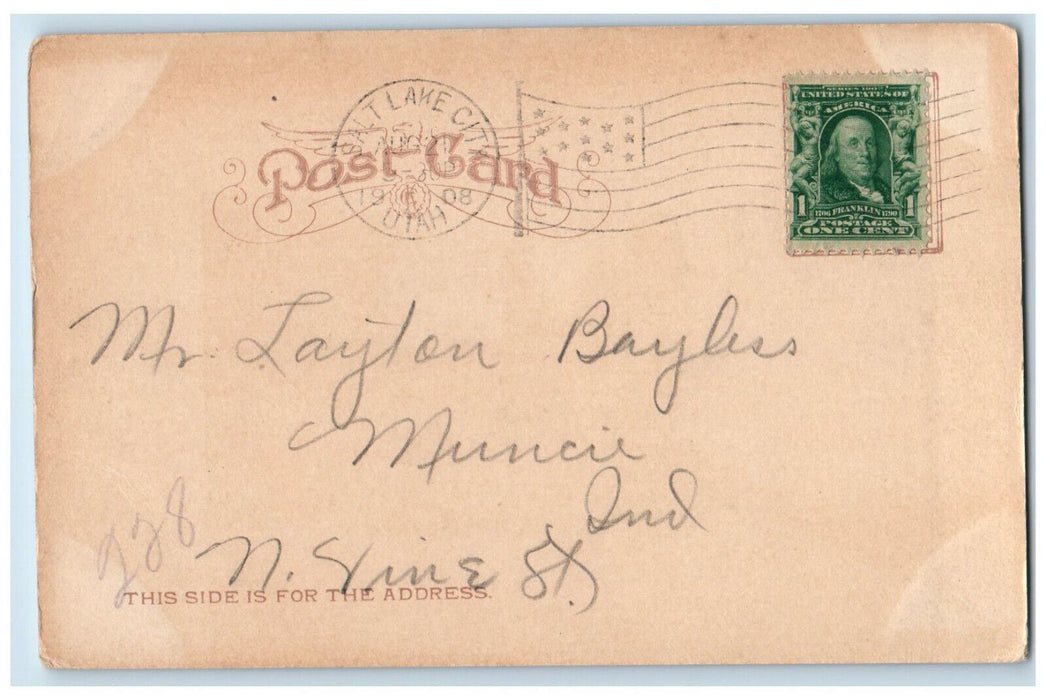 Post Card
SALT LAKE CITY
AUG
1908
UTAH
SERIES 1902
UNITED STATES OF
AMERICA
1 1706 FRANKLIN 1790 1
POSTAGE
ONE CENT
Mr. Layton Bayless
Muncie
Ind
228
N. Vine St.
THIS SIDE IS FOR THE ADDRESS.